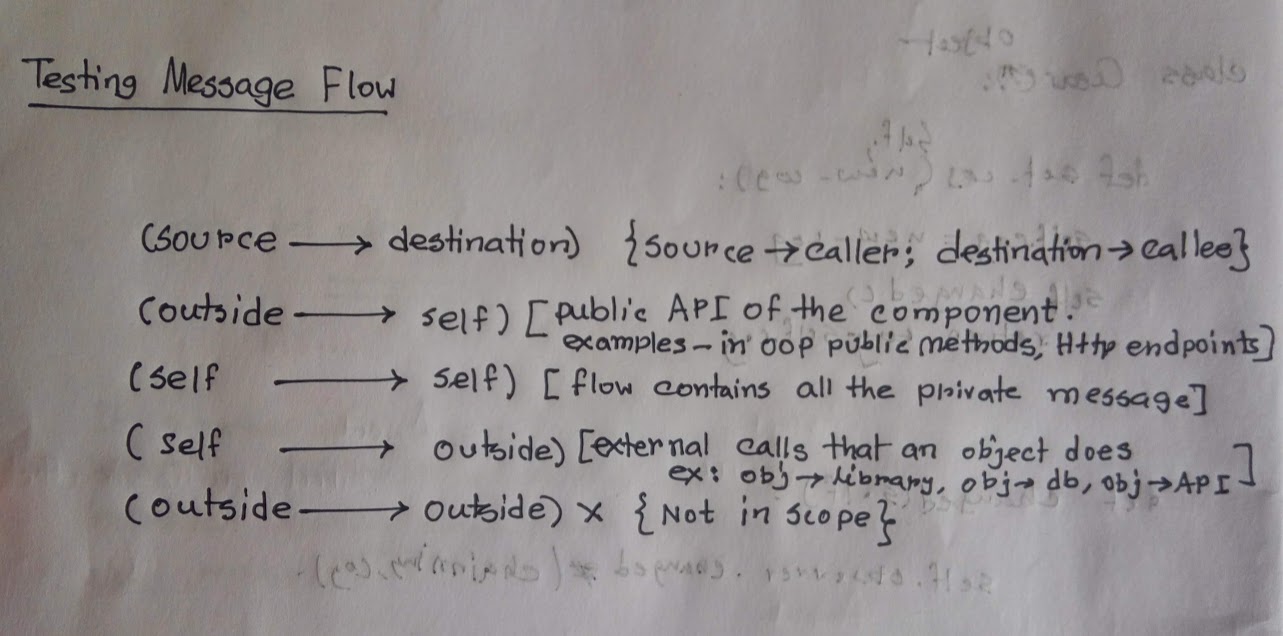 Testing Message Flow
(source → destination) {source → caller; destination → callee}
(outside → self) [public API of the component.
examples - in oop public methods, Http endpoints]
(self → self) [flow contains all the private message]
(self → outside) [external calls that an object does
ex: obj → library, obj → db, obj → API]
(outside → outside) x {Not in scope}